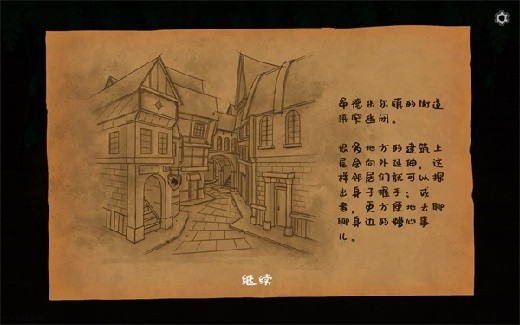 昂德米尔镇的街道
狭窄幽闭。
很多地方的建筑上
层会向外延伸，这
样邻居们就可以探
出身子握手；或
者，更方便地去聊
聊身边的糟心事
儿。
继续